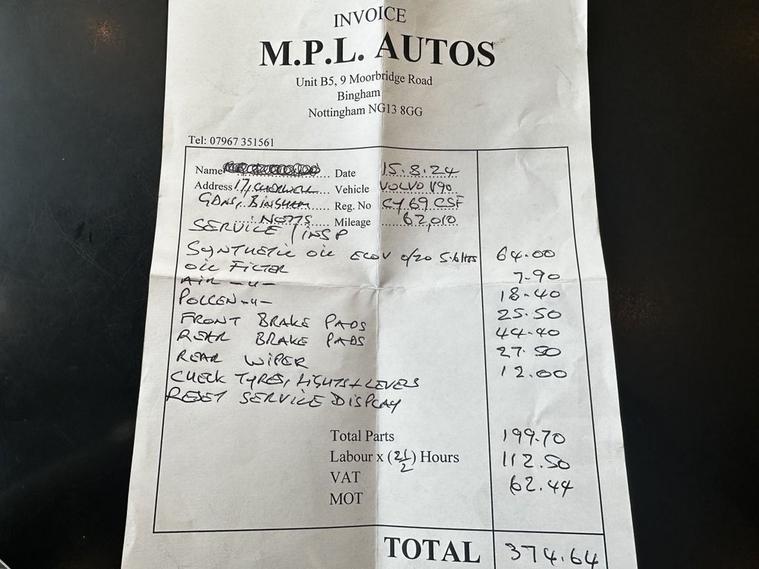 INVOICE
M.P.L. AUTOS
Unit B5, 9 Moorbridge Road
Bingham
Nottingham NG13 8GG
Tel: 07967 351561
Name Date 15.8.24
Address 17, Vehicle VOLVO V90
GDNS, BINGHAM Reg. No CY69 CSF
NOTTS Mileage 62,010
SERVICE / INSP
SYNTHETIC OIL ECOV 0/20 5.6 LTS 64.00
OIL FILTER 7.90
AIR -"- 18.40
POLLEN -"- 25.50
FRONT BRAKE PADS 44.40
REAR BRAKE PADS 27.50
REAR WIPER 12.00
CHECK TYRES, LIGHTS + LEVELS
RESET SERVICE DISPLAY
Total Parts 199.70
Labour x (2½) Hours 112.50
VAT 62.44
MOT
TOTAL 374.64